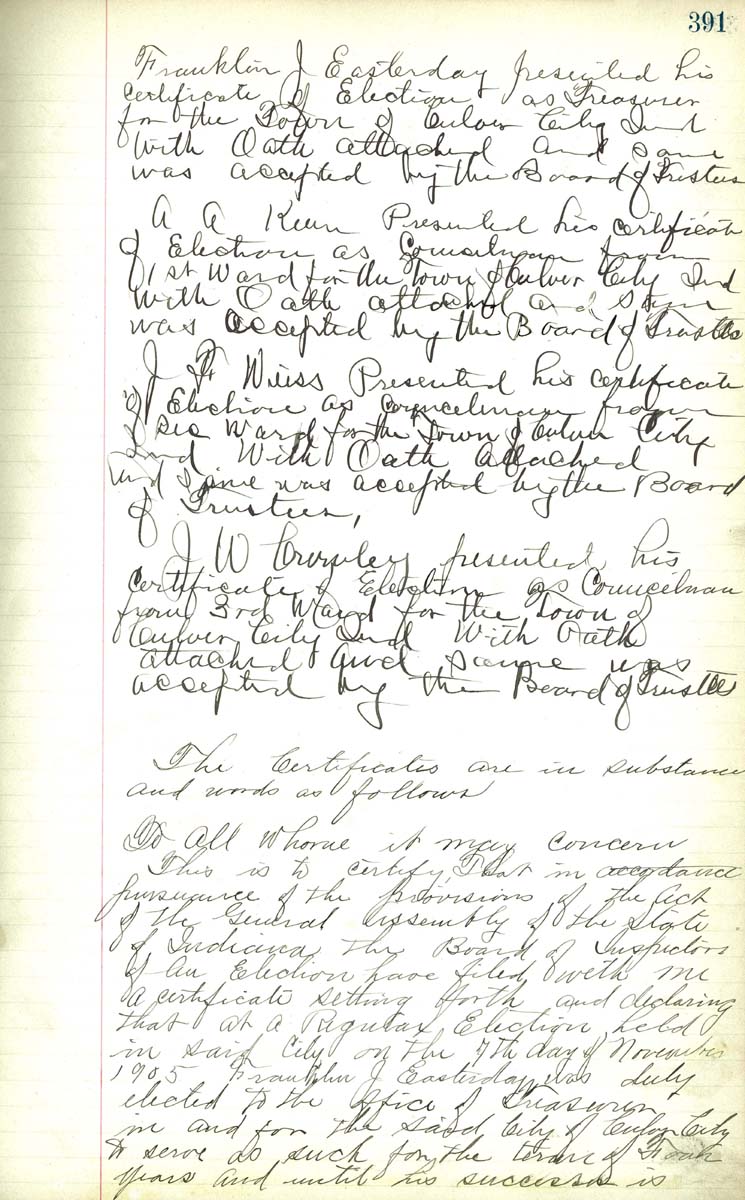 391
Franklin J Easterday presented his
certificate of Election as Treasurer
for the Town of Culver City Ind
With Oath attached and same
was accepted by the Board of Trustees
A A Keen Presented his certificate
of Election as Councilman from
1st Ward for the Town of Culver City Ind
With Oath attached and same
was accepted by the Board of Trustees
J F Weiss Presented his certificate
of Election as Councelman from
Sec Ward for the Town of Culver City
Ind With Oath attached
And same was accepted by the Board
of Trustees,
J W Crumley presented his
certificate of Election as Councilman
from 3rd Ward for the Town of
Culver City Ind With Oath
attached and same was
accepted by the Board of Trustees
The Certificates are in substance
and words as follows
To All Whome it may concern
This is to certify, That in accordance
pursuance of the provisions of the Act
of the General Assembly of the State
of Indiana, the Board of Inspectors
of An Election have filed with me
A certificate setting forth and declaring
that at A Regular Election held
in said City on the 7th day of November
1905 Franklin J Easterday was duly
elected to the office of Treasurer
in and for the said City of Culver City
to serve as such for the term of Four
years and until his successor is